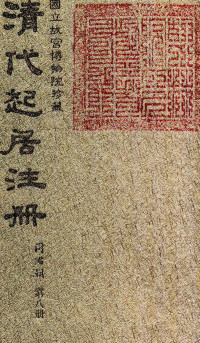 國立故宮博物院珍藏
清代起居注冊
同治朝 第八冊